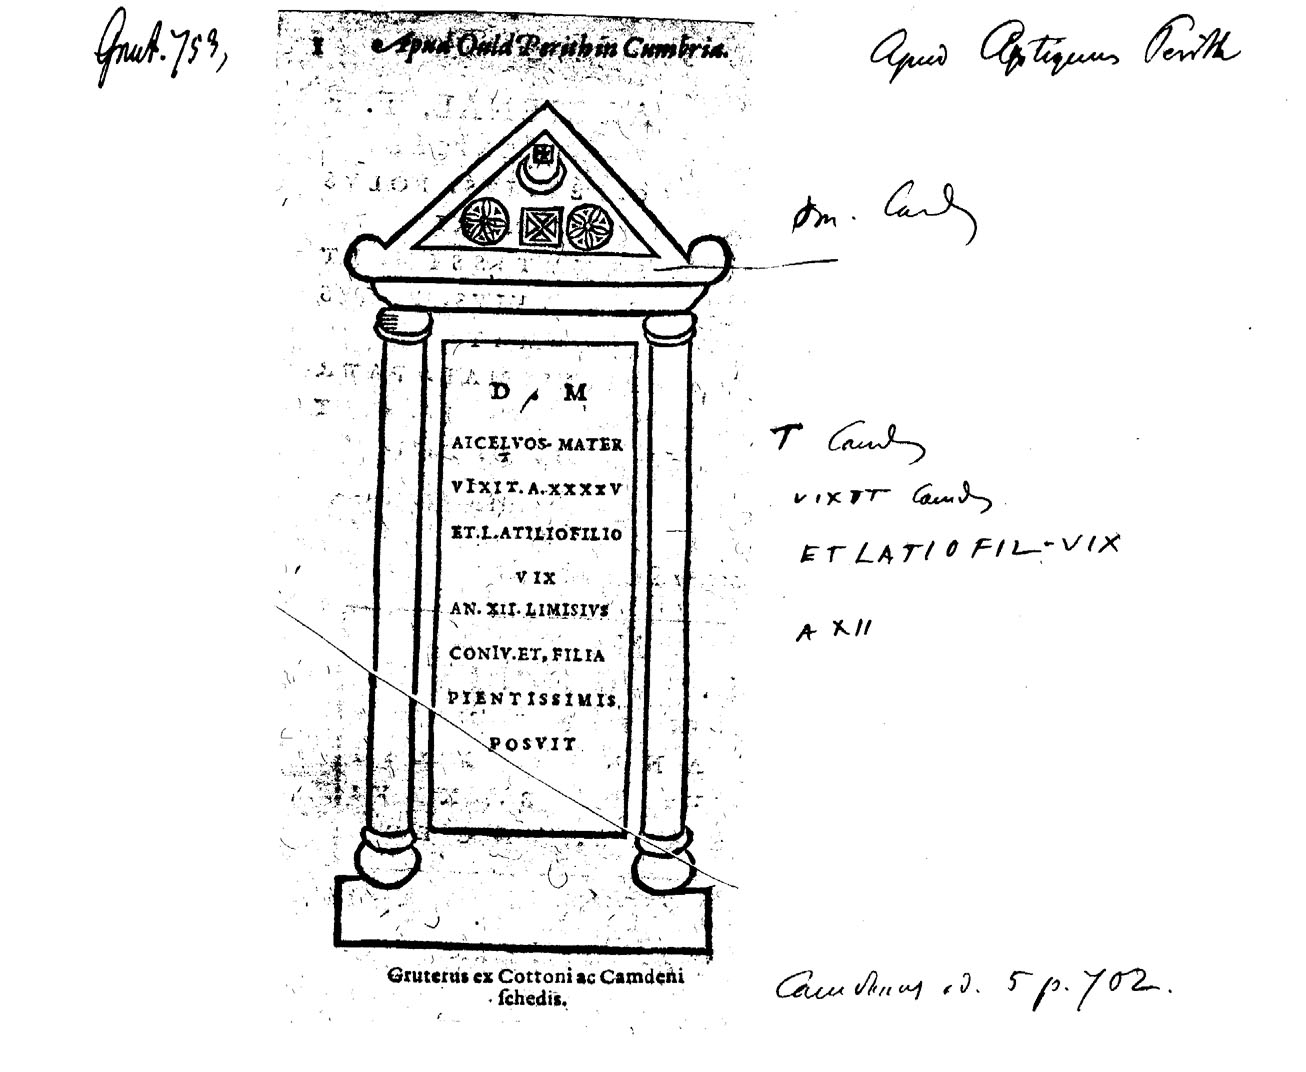 Grut. 753,
1 Apud Ould Perith in Cumbria.
Apud Antiquum Perith
om. Camd
D M
AICELVOS- MATER
T Camd
VIXIT. A. XXXXV
VIXIT Camd
ET. L. ATILIOFILIO
ET LATIO FIL-VIX
VIX
AN. XII. LIMISIVS
A XII
CONIV. ET, FILIA
PIENTISSIMIS
POSVIT
Gruterus ex Cottoni ac Camdeni
schedis.
Camdenus ed. 5 p. 702.